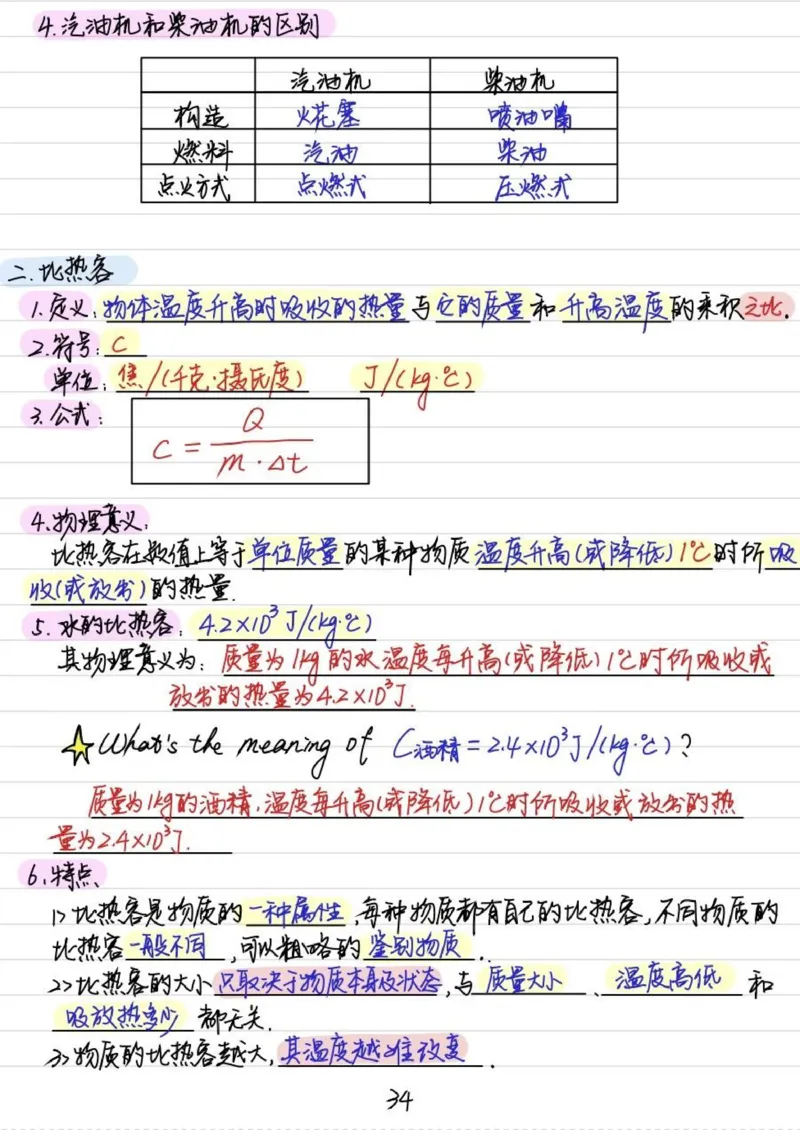 4.汽油机和柴油机的区别
汽油机 柴油机
构造 火花塞 喷油嘴
燃料 汽油 柴油
点火方式 点燃式 压燃式
二.比热容
1.定义:物体温度升高时吸收的热量与它的质量和升高温度的乘积之比.
2.符号:C
单位:焦/(千克·摄氏度) J/(kg·℃)
3.公式:
C = Q / m·Δt
4.物理意义:
比热容在数值上等于单位质量的某种物质温度升高(或降低)1℃时所吸
收(或放出)的热量.
5.水的比热容:4.2×10³J/(kg·℃)
其物理意义为:质量为1kg的水温度每升高(或降低)1℃时所吸收或
放出的热量为4.2×10³J.
What's the meaning of C酒精=2.4×10³J/(kg·℃)?
质量为1kg的酒精,温度每升高(或降低)1℃时所吸收或放出的热
量为2.4×10³J.
6.特点、
1>比热容是物质的一种属性,每种物质都有自己的比热容,不同物质的
比热容一般不同,可以粗略的鉴别物质.
2>比热容的大小只取决于物质本身及状态,与质量大小、温度高低和
吸放热多少都无关.
3>物质的比热容越大,其温度越难改变.
34